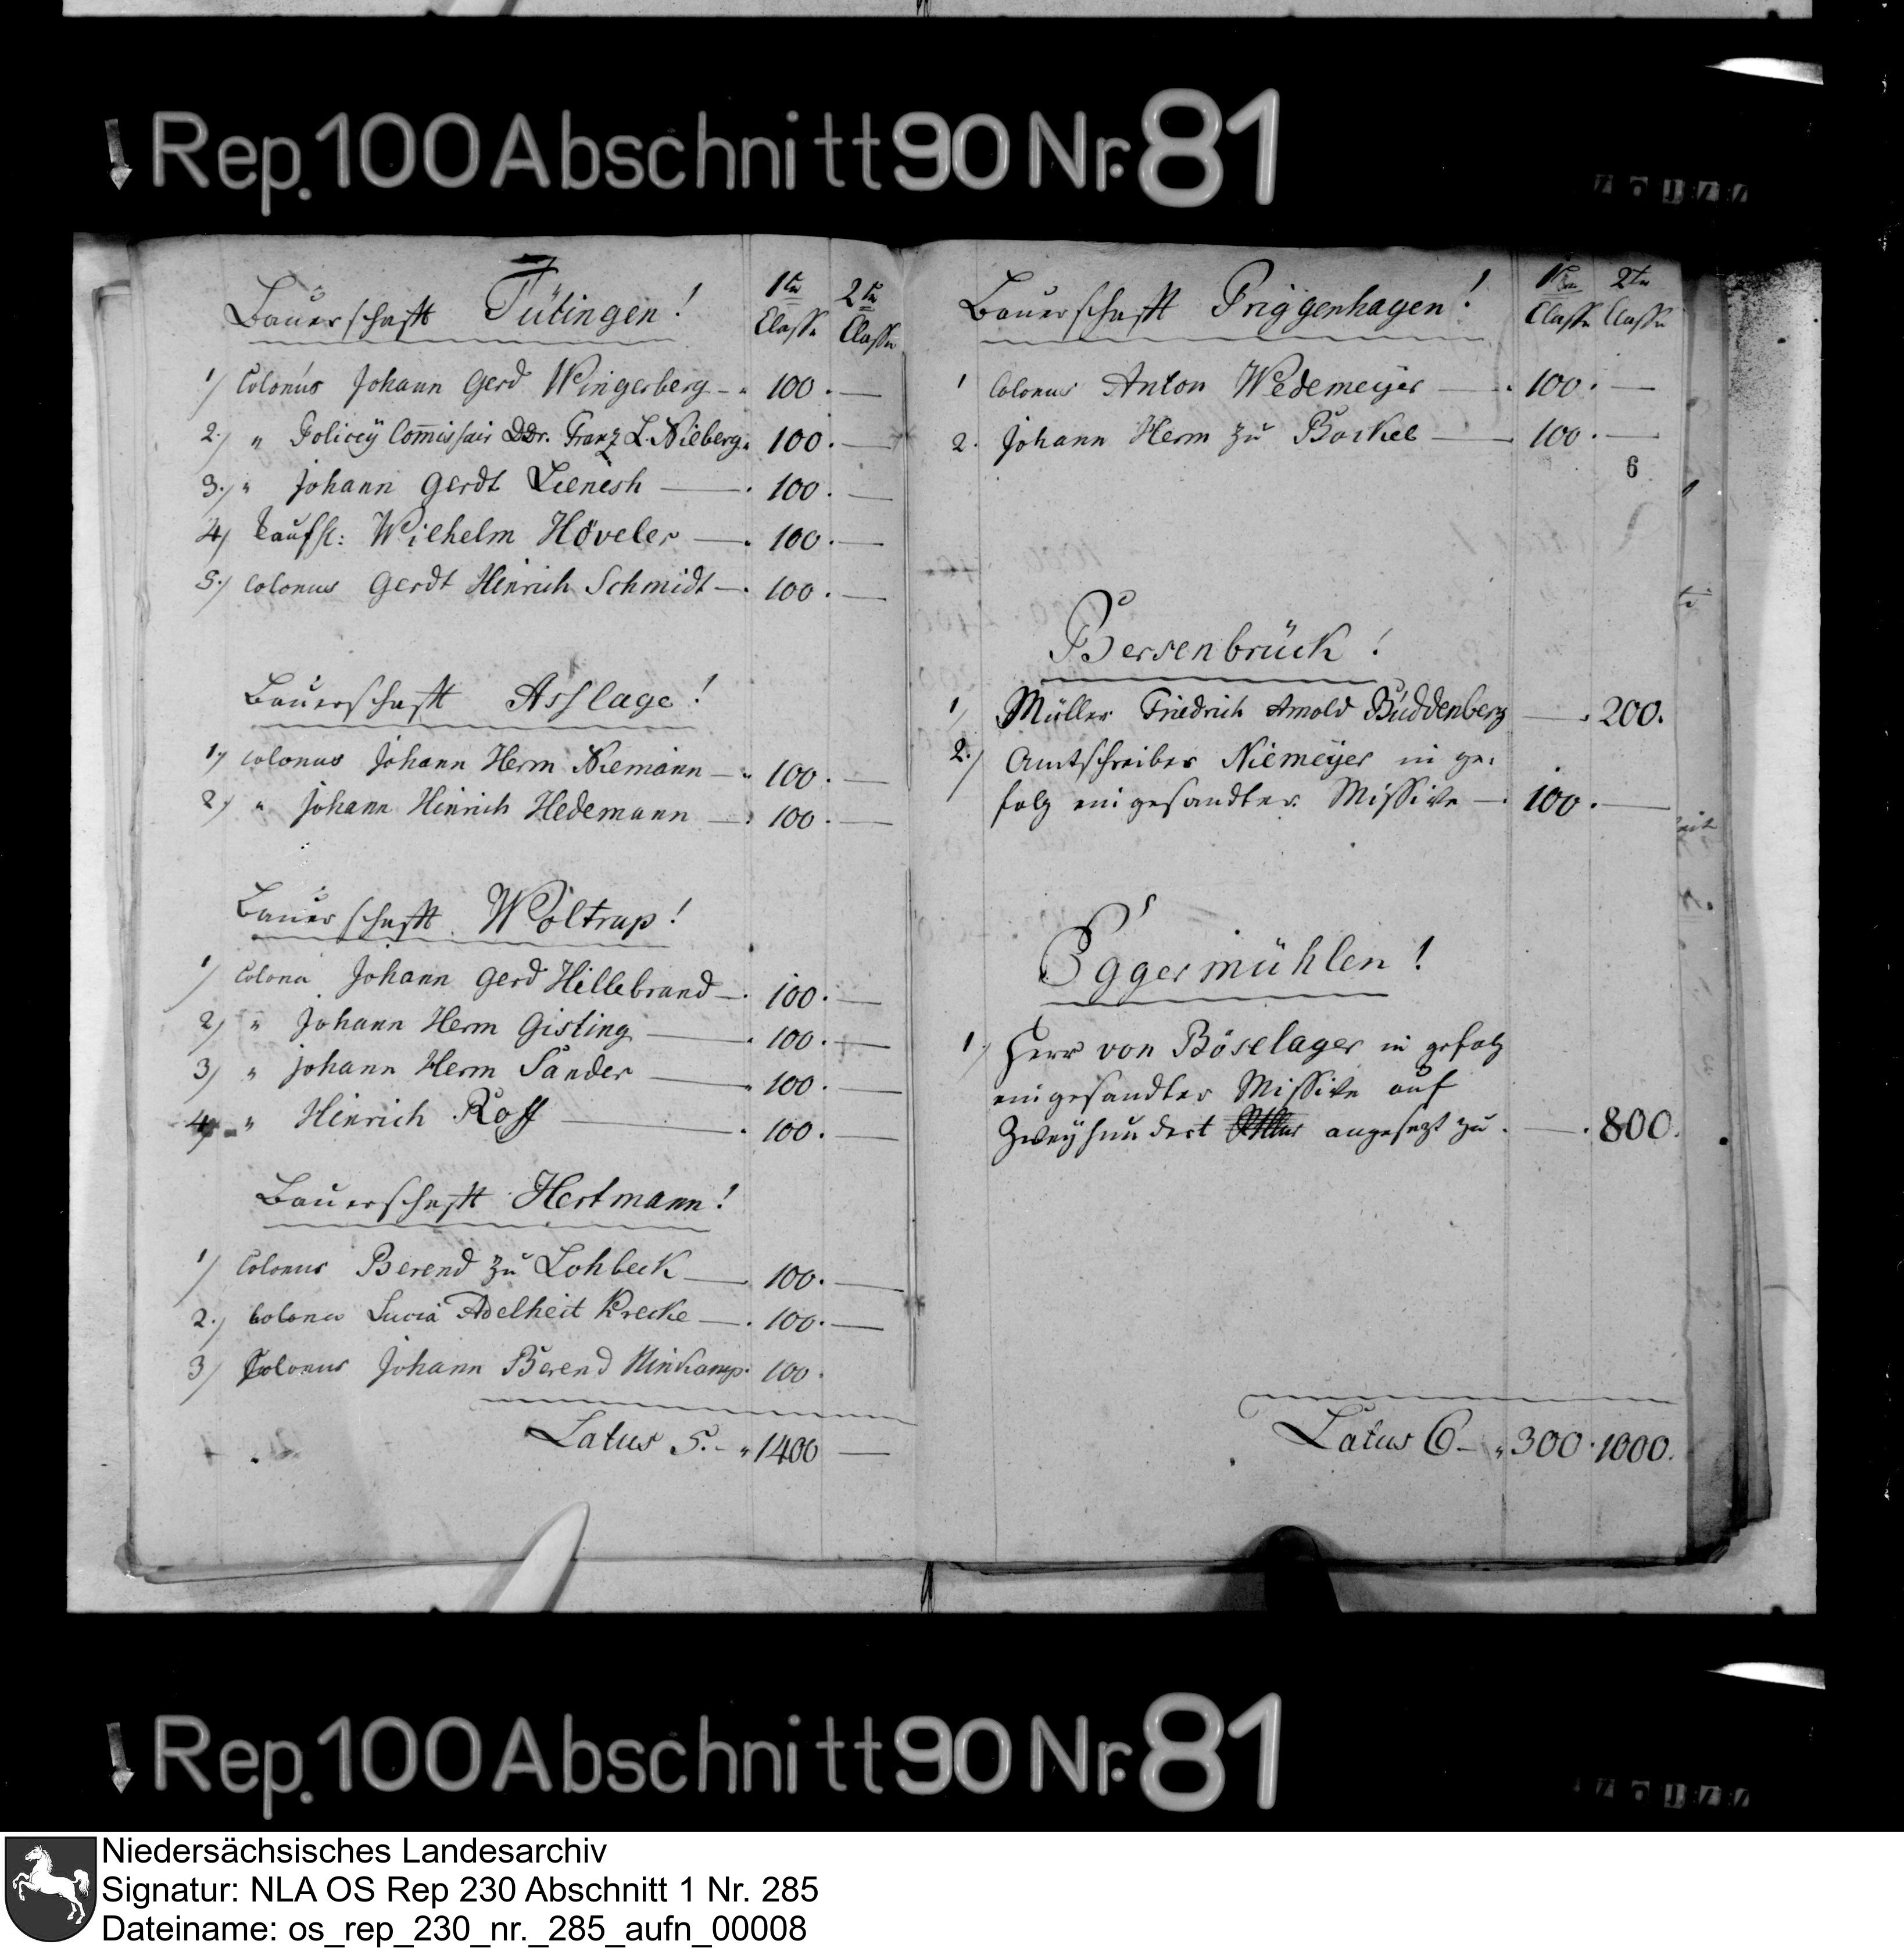 Rep. 100 Abschnitt 90 Nr. 81
Bauerschafft Tütingen!
1te Classe
2te Classe
1/ Colonus Johann Gerd Wingerberg - " 100. —
2./ " Policey Com̄issair DDr. Franz L. Nieberg " 100. —
3./ " Johann Gerdt Lienesh — . 100. —
4/ Kaufh: Wilhelm Höveler — . 100. —
5./ Colonus Gerdt Hinrich Schmidt — . 100. —
Bauerschafft Asslage!
1./ Colonus Johann Herm Niemann — " 100. —
2./ " Johann Hinrich Hedemann — . 100. —
Bauerschafft Woltrup!
1/ Colona Johann Gerd Hillebrand — . 100. —
2/ " Johann Herm Gisting — . 100. —
3/ " Johann Herm Sander — " 100. —
4/ " Hinrich Ross — . 100. —
Bauerschafft Hertmann!
1/ Colonus Berend zu Lohbeck — . 100. —
2./ Colona Lucia Adelheit Krecke — . 100. —
3/ Colonus Johann Berend Ninkamp . 100.
Latus 5. - " 1400 —
Bauerschafft Priggenhagen!
1te Classe
2te Classe
1 Colonus Anton Wedemeyer — . 100. —
2. Johann Herm zu Bockel — . 100. —
6
Bersenbrück!
1/ Müller Friedrich Arnold Buddenberg — . 200.
2./ Amtschreiber Niemeyer in ge-
folg eingesandter Missive — . 100. —
Eggermühlen!
1./ Herr von Böselager in gefolg
eingesandter Missive auf
Zweyhundert angesezt zu . — . 800.
Latus 6 - " 300 . 1000.
Rep. 100 Abschnitt 90 Nr. 81
Niedersächsisches Landesarchiv
Signatur: NLA OS Rep 230 Abschnitt 1 Nr. 285
Dateiname: os_rep_230_nr._285_aufn_00008